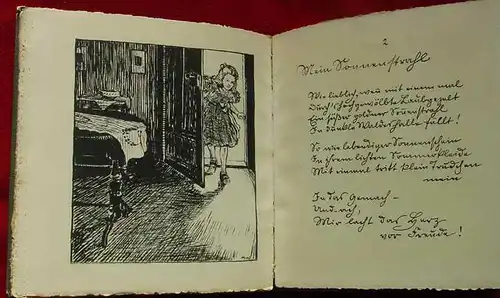 2
Mein Sonnenstrahl
Wie lieblich, wenn mit einem mal
Durch's hochgewölbte Laubgezelt
Ein süßer goldner Sonnenstrahl
In dunkle Waldeshalle fällt!
So wie lebendiger Sonnenschein
In ihrem lichten Sommerkleide
Mit einmal tritt klein Trudchen
mein
In das Gemach –
Und ach,
Mir lacht das Herz
vor Freude!